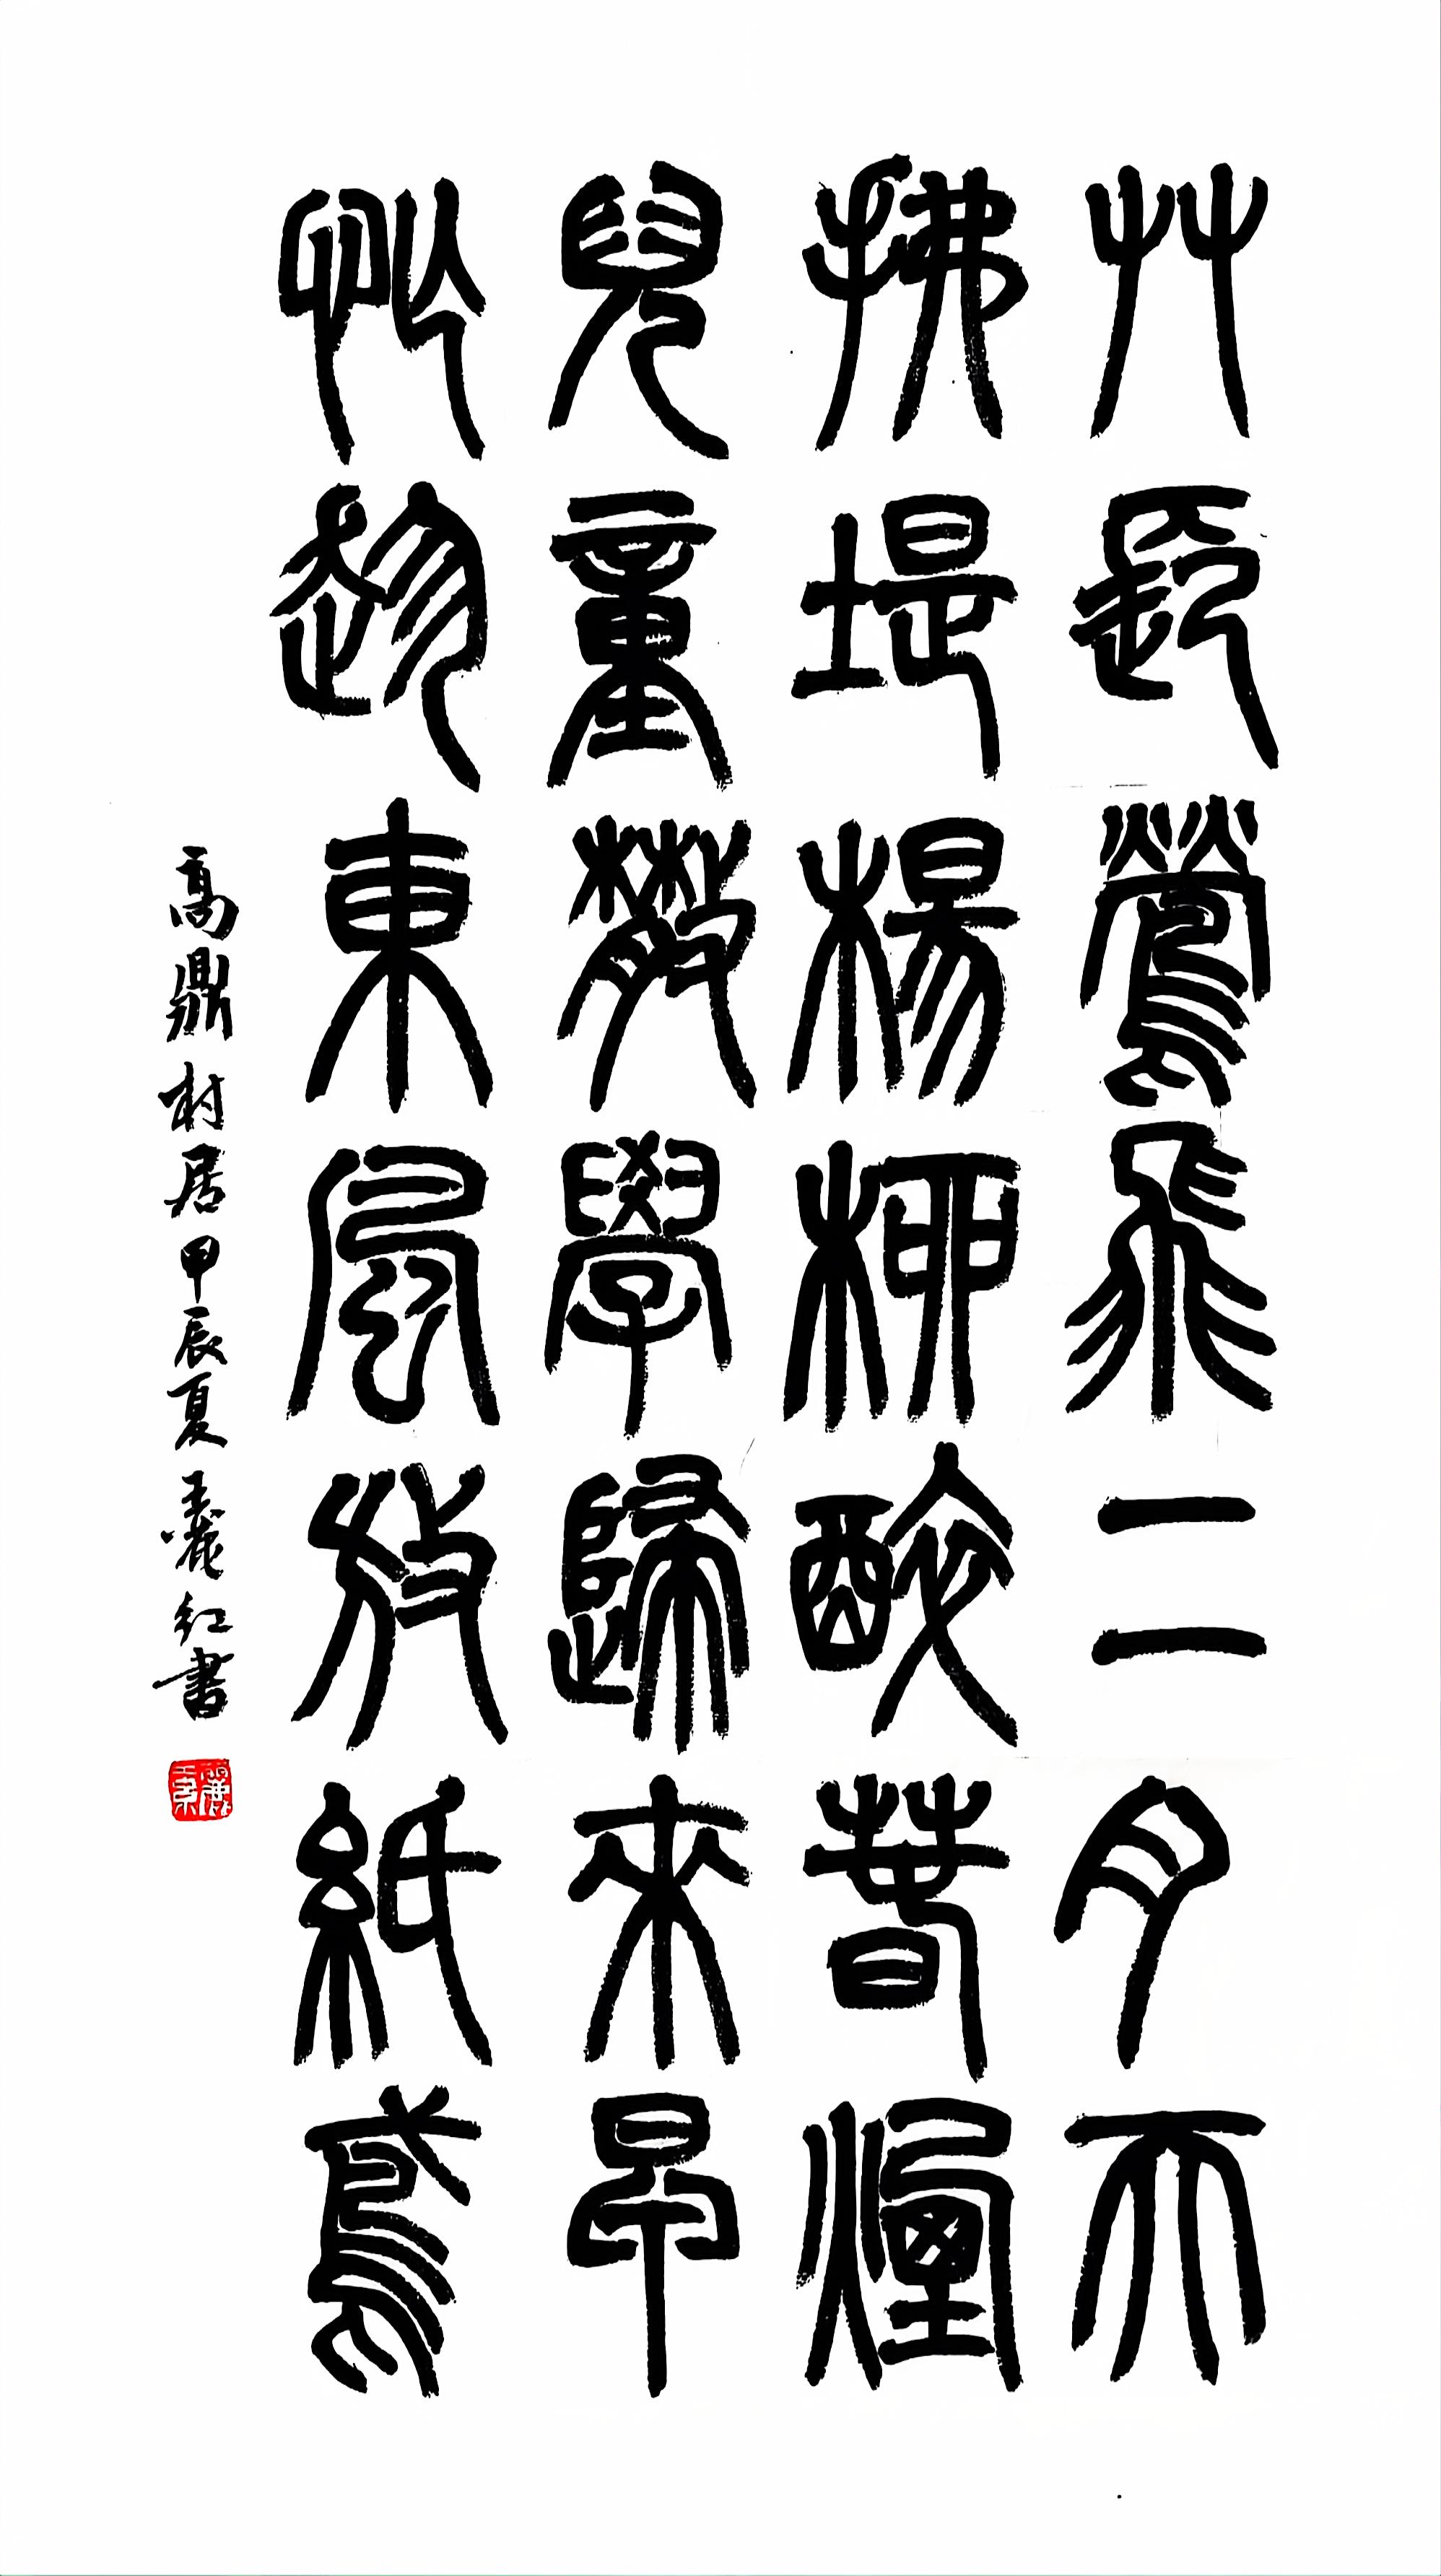 艸長鶯飛二月天
拂堤楊柳醉春煙
兒童散學歸來早
忙趁東風放紙鳶
高鼎村居甲辰夏王麗红書